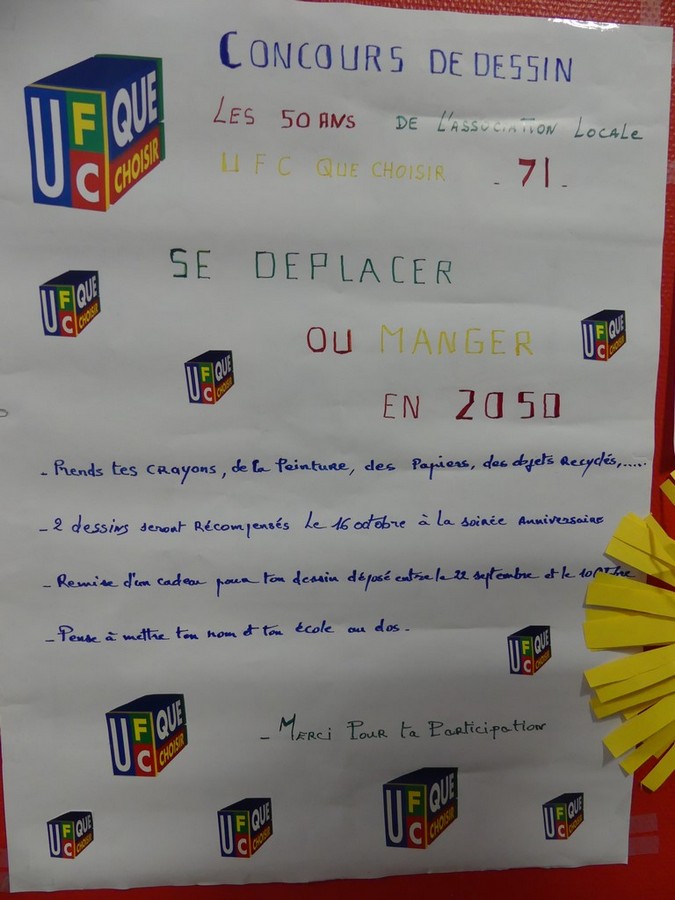 CONCOURS DE DESSIN
LES 50 ANS DE L'ASSOCIATION LOCALE
UFC QUE CHOISIR - 71 -
UFC QUE CHOISIR
SE DEPLACER
UFC QUE CHOISIR
OU MANGER
UFC QUE CHOISIR
UFC QUE CHOISIR
EN 2050
- Prends tes crayons, de la Peinture, des Papiers, des objets recyclés,.....
- 2 dessins seront Récompensés le 16 octobre à la soirée Anniversaire
- Remise d'un cadeau pour ton dessin déposé entre le 22 septembre et le 10 octobre
- Pense à mettre ton nom et ton école au dos.
UFC QUE CHOISIR
UFC QUE CHOISIR
- Merci Pour ta Participation
UFC QUE CHOISIR
UFC QUE CHOISIR
UFC QUE CHOISIR
UFC QUE CHOISIR